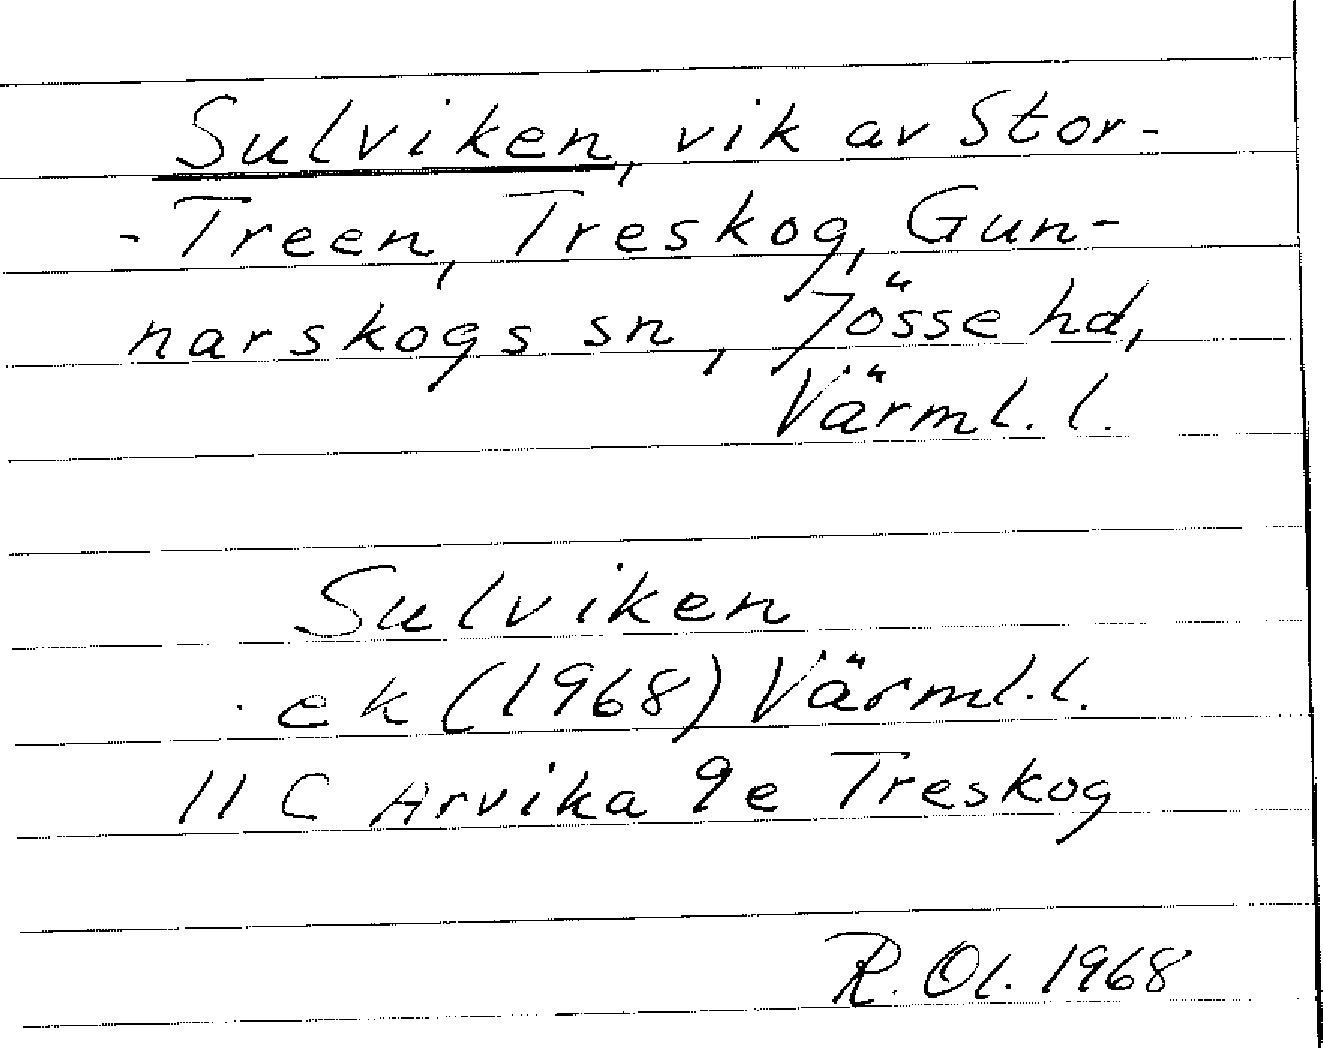 Sulviken, vik av Stor-
-Treen, Treskog, Gun-
narskogs sn, Jösse hd,
Värml. l.
Sulviken
ek (1968) Värml. l.
11 C Arvika 9e Treskog
R. Ol. 1968